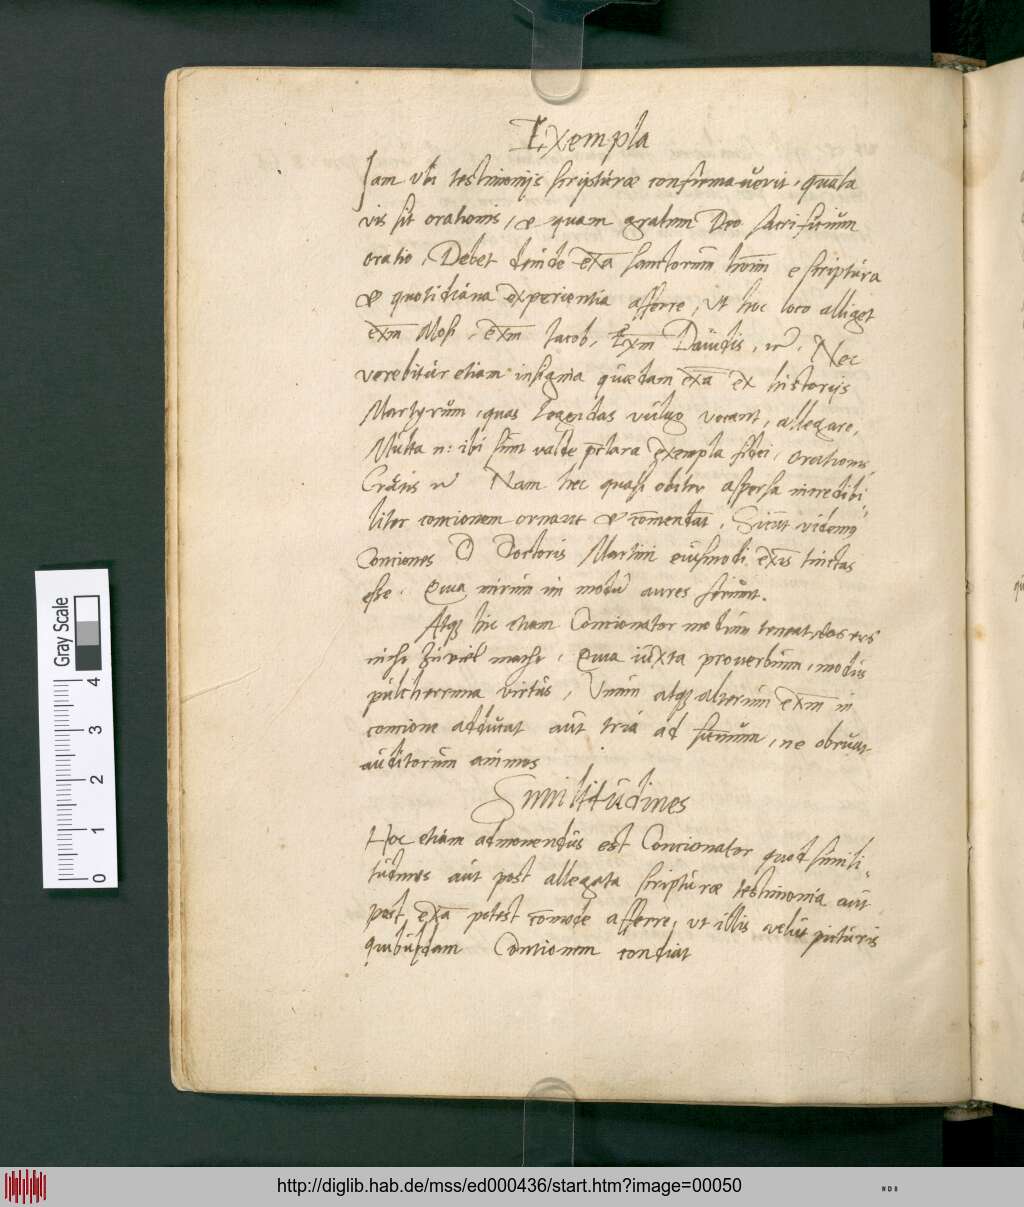 Exempla
Iam vbi testimonijs scripturæ confirmauerit, quanta
vis sit orationis, & quam gratum Deo sacrificium
oratio, Debet deinde exa sanctorum hoim e scriptura
& quotidiana experientia afferre, Vt hoc loco alliget
exm Mosi, exm Iacob, Exm Dauidis, Nec
verebitur etiam insignia quædam exa ex historijs
Martyrum, quas legendas vulgo vocant, allegare,
Multa n: ibi sunt valde pclara Exempla fidei, orationis,
Nam hec quasi obiter aspersa incredibi
liter concionem ornant & comendat, Sicut videmq
Conciones D Doctoris Martini eiusmodi exis tinctas
esse. Qua mirum in modu aures feriunt.
Atqz hic etiam Concionator modum teneat, das ers
nicht zuuiel mache, Quia iuxta proverbium, modus
pulcherrima virtus, Vnum atqz alterum exm in
concione adducat aut tria ad summum, ne obruat
auditorum animos
Similitudines
Hoc etiam admonendus est Concionator quod simili-
tudines aut post allegata scripturæ testimonia aut
post exa potest comode afferre, vt illis velut picturis
quibusdam Contionem condiat
Gray Scale
0 1 2 3 4
http://diglib.hab.de/mss/ed000436/start.htm?image=00050